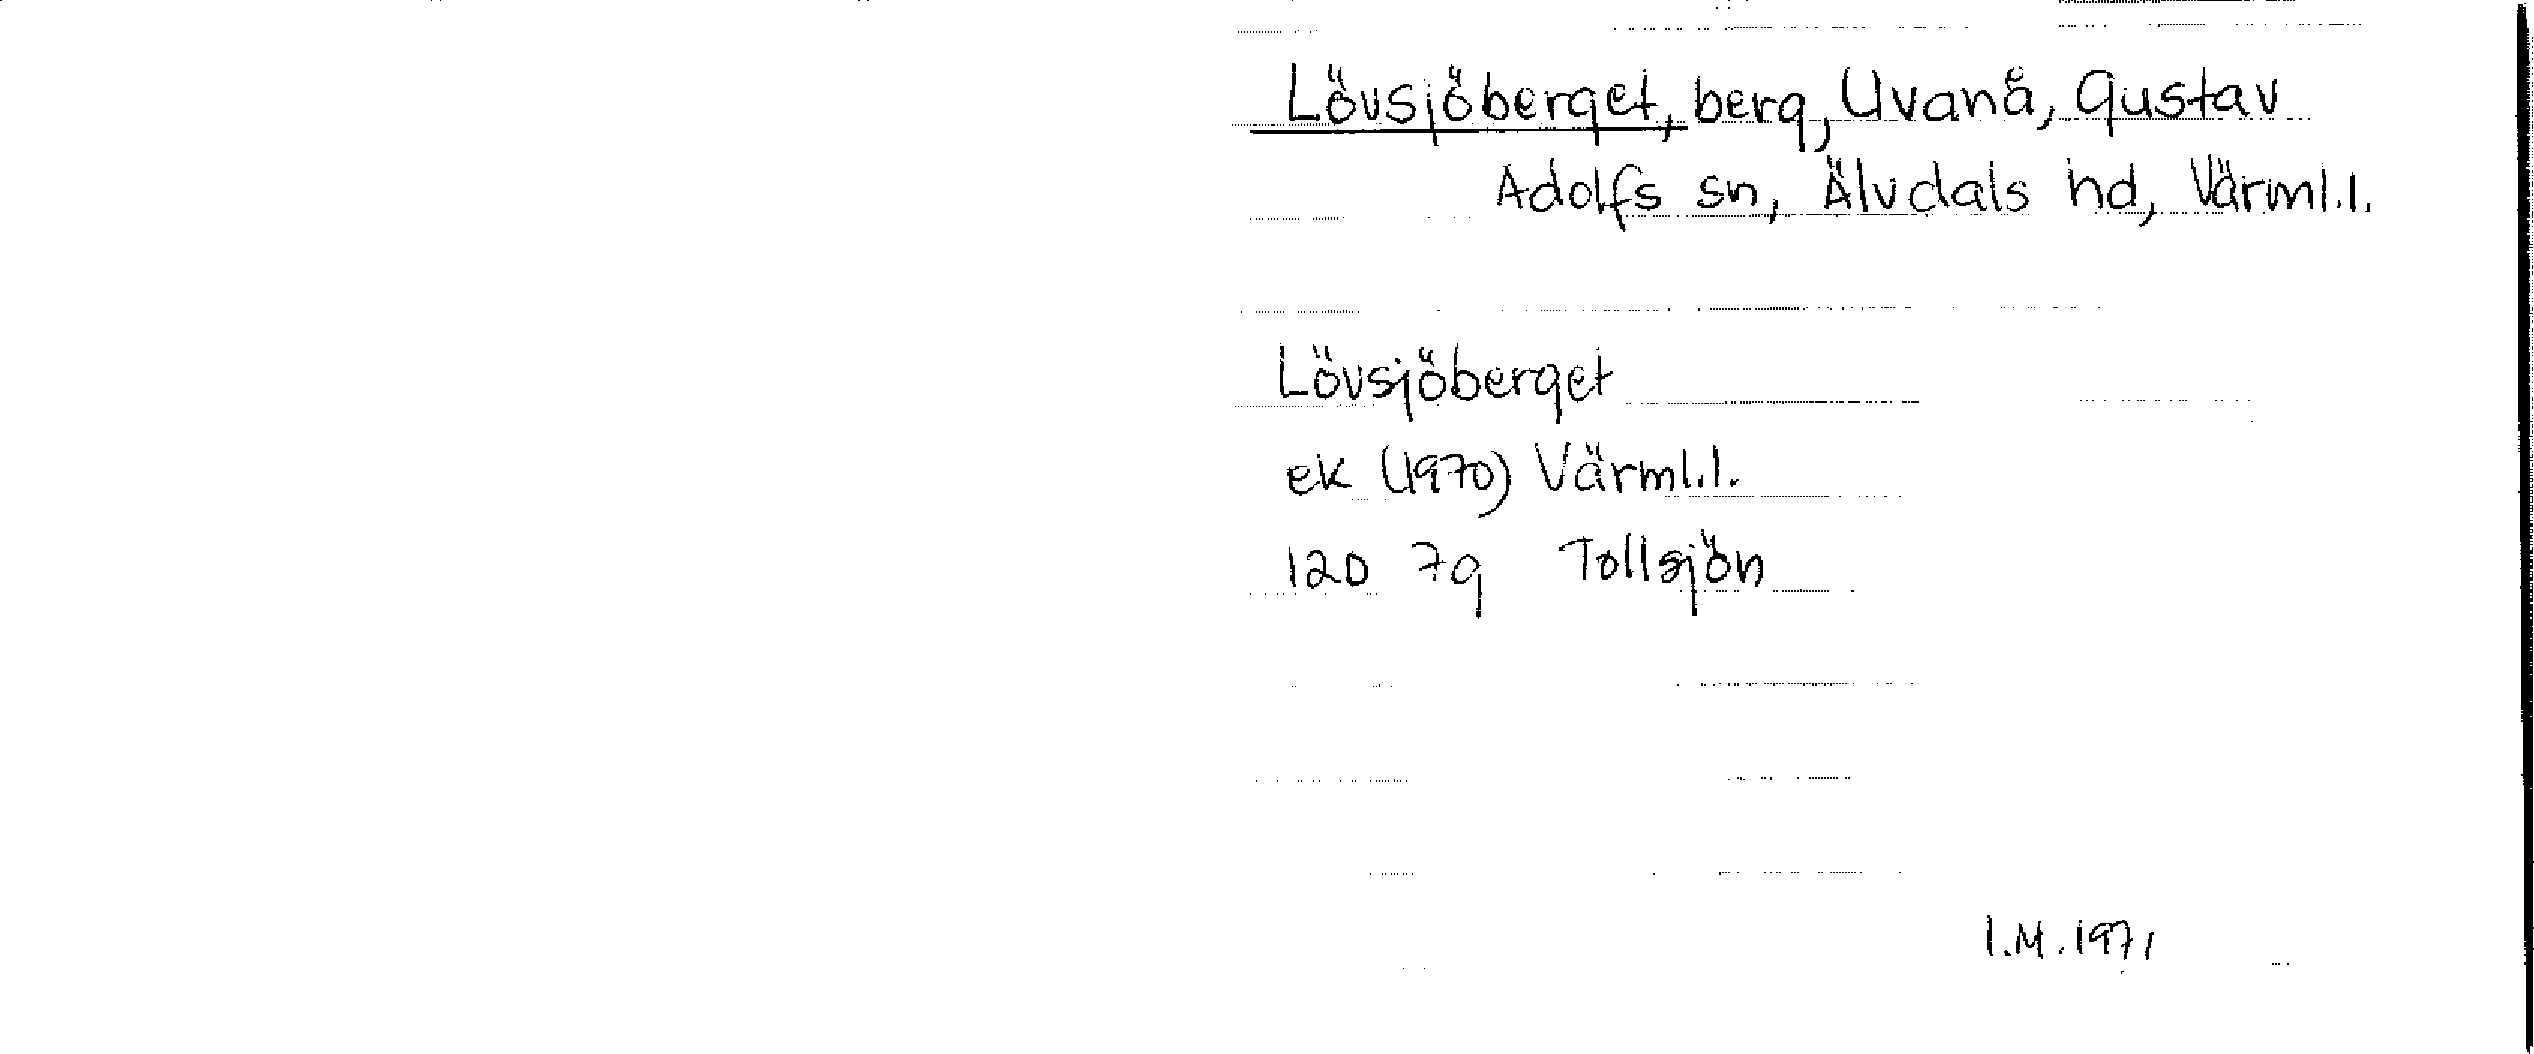 Lövsjöberget, berg, Uvanå, Gustav
Adolfs sn, Älvdals hd, Värml.l.
Lövsjöberget
ek (1970) Värml.l.
12D 7g Tollsjön
I.M. 1971